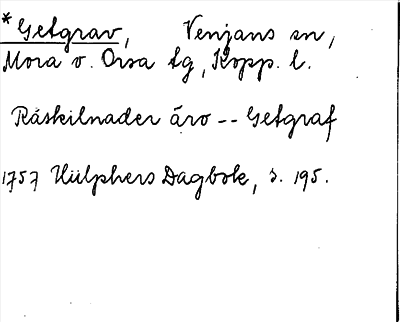 *Getgrav, Venjans sn,
Mora o. Orsa tg, Kopp. l.
Råskilnader äro -- Getgraf
1757 Hülphers Dagbok, s. 195.